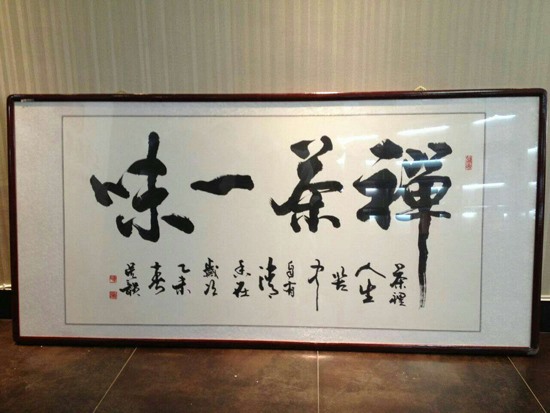 禅茶一味
茶裡
人生
苦
中
自有
清
香在
歲次
乙未
春